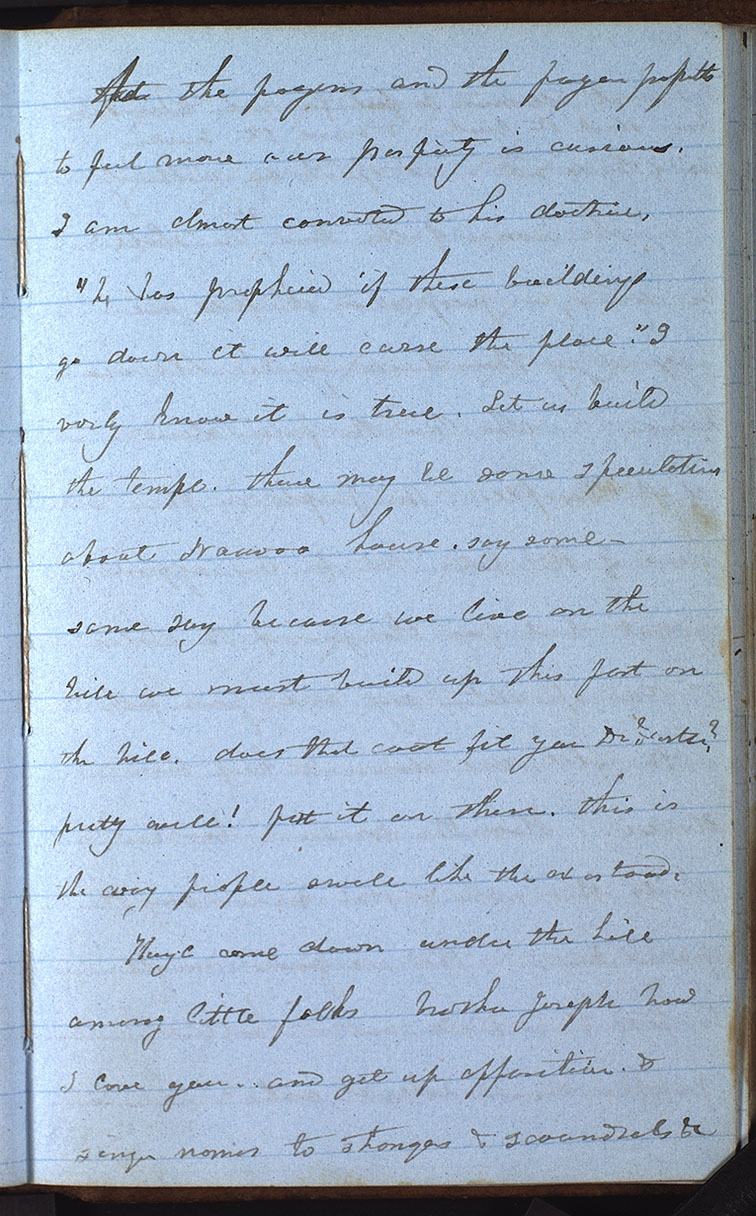 that the pagens and the pagan prophets
to feel more our prosperity is curious.
I am almost converted to his doctrine,
"he has prophicid if these buildings
go down it will curse the place." I
verily know it is true. Let us build
the temple. there may be some speculations
about Nauvoo house. say some—
some say because we live on the
hill we must build up this part on
the hill. does that coat fit you Dr Foster?
pretty well! put it on then. this is
the way people swell like the ox or toad.
They'l come down under the hill
among little folks brother Joseph how
I love you.. and get up opposition. &
sings names to strangers & scoundrels &c